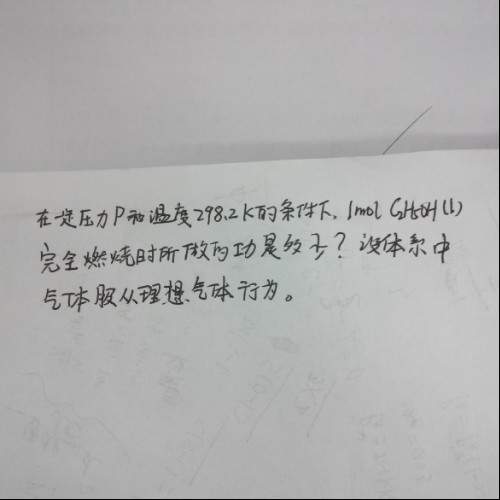 在一定压力P和温度298.2K的条件下，1mol C2H5OH(l)
完全燃烧时所做的功是多少？设体系中
气体服从理想气体行为。